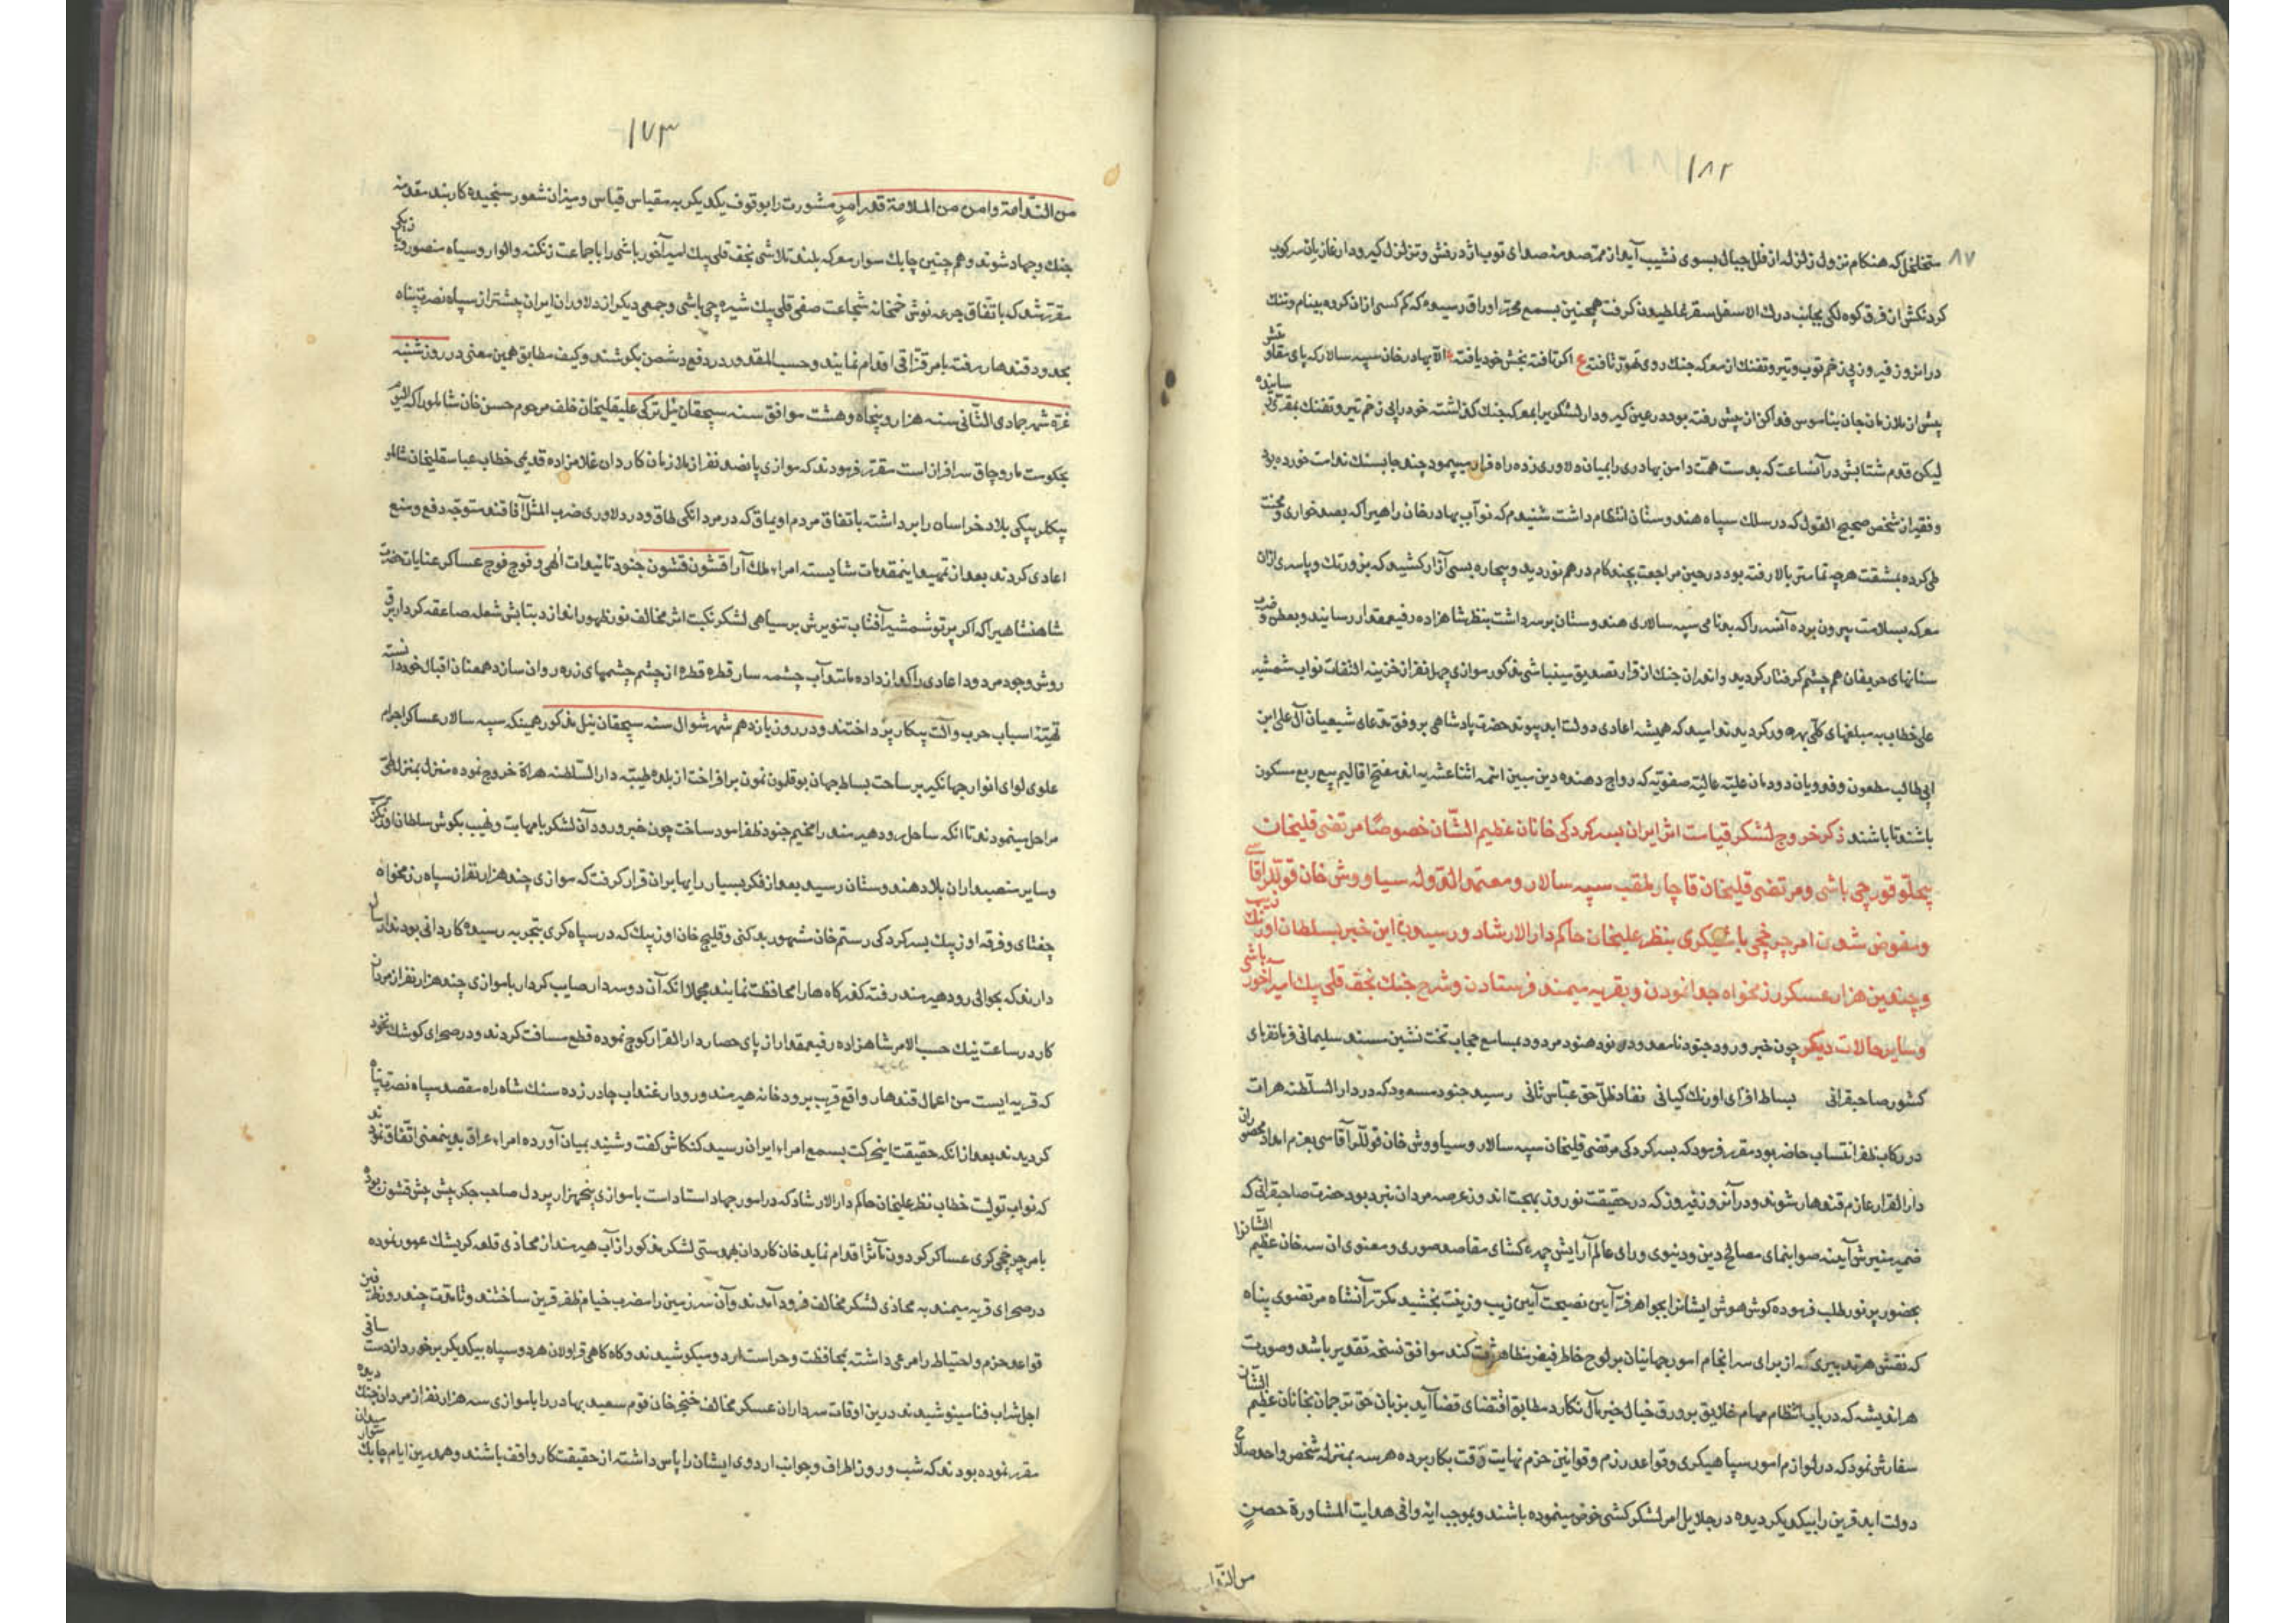 ۱۸۲
۸۷
متخلخل که هنکام نزول زلزله از قلل جبال بسوی نشیب آید از صدمه صدای توپ اژدرفش و تزلزل کیرودار غازیان سرکوب
کردنکش ان فرق کوه لکی بجانب درك الاسفل سقر غلطیدن کرفت همچنین بسمع محرر اوراق رسیده که کم کسی از ان کروه بینام وننك
در انروز فیروز بی زخم توپ وتیر وتفنك ان معرکه جنك روی تافته اکر تافته بخش خود یافته الا بهادر خان سپه سالار که پای
پیش از ملازمان جان بناموس فدا کن از پیش رفته بود در عین کیرودار لشکریرا بمعرکه جنك کذاشته خود را بی زخم تیر وتفنك
لیکن قدم شتابش در آنساعت که بدست همت دامن بهادری را بمیان دلاوری زده راه فرار میپمود چند جا بسنك ندامت خورده بود
وفقیر از شخص صحیح القول که در سلك سپاه هندوستان انتظام داشت شنیدم که نوآب بهادر خان راهیرا که بصد خواری ومحنت
طی کرده بمشقت هرچه تمامتر بالا رفته بود در حین مراجعت بچند کام درهم نوردید وبیچاره بسی آزار کشید که بزور تك وپا سری از ان
معرکه بسلامت بیرون برده آنسر را که بدنامی سپه سالاری هندوستان برمیداشت بنظر شاهزاده رفیعمقدار رسانید وبعطن و ضرب
سنانهای حریفان هم چشم کرفتار کردید وانعدان جنك از قرار تصدیق مینباشی مذکور موازی چهل نفر از خزینه التفات نواب شمشیر
علی خطاب به مبلغهای کلی بهره ور کردیدند امید که همیشه اعادی دولت ابد پیوند حضرت پادشاهی بر وفق مدعای شیعیان آل علی ابن
ابی طالب مطعون وفدویان دودمان علیه عالیه صفویه که رواج دهنده دین مبین ائمه اثنا عشریه اند مفتح اقالیم ربع مسکون
باشند تا باشند ذکر خروج لشکر قیامت اثر ایران بسرکردکی خانان عظیم الشان خصوصًا مرتضی قلیخان
بیجلو قورچی باشی ومرتضی قلیخان قاچار ملقب سپه سالار ومعتمد الدوله سیاووش خان قوللر آقاسی
ومفوض شدن امر چرخچی باشیکری بنظر علیخان حاکم دار الارشاد ورسیدن این خبر بسلطان اورنك زیب
وچندین هزار عسکر رزمخواه جدا نمودن وبقریه میمند فرستادن وشرح جنك نجف قلی بیك امیر آخور باشی
وسایر حالات دیکر چون خبر ورود جنود نامعدود هنود مردود بمسامع حجاب تخت نشین مسند سلیمانی فرمانفرمای
کشور صاحبقرانی بساط افزای اورنك کیانی نفاذ ظل حق عباس ثانی رسید جنود مسعود که در دار السلطنه هرات
در رکاب ظفر انتساب حاضر بود مقرر فرمود که بسرکردکی مرتضی قلیخان سپه سالار وسیاووش خان قوللر آقاسی بعزم امداد محصوران
دار القرار عازم قندهار شوند ودر آنروز فیروز که در حقیقت نوروز بهجت اندوز عرصه مردان نبرد بود حضرت صاحبقرانی که
ضمیر منیرش آینه صوابنمای مصالح دین ودنیوی ورای عالم آرایش چهره کشای مقاصد صوری ومعنوی ان سه خان عظیم الشانرا
بحضور پرنور طلب فرموده کوش هوش ایشانرا بجواهر آیین نصیحت آیین زیب وزینت بخشید مکرر آنشاه مرتضوی پناه
که نقش هر تدبیری که از برای سرانجام امور جهانیان بر لوح خاطر فیض مظاهر ثبت کند موافق نسخه تقدیر باشد وصورت
هر اندیشه که در باب انتظام مهام خلایق بر ورق خیال خیر مآل نکارد مطابق اقتضای قضا آید بزبان حق ترجمان بخانان عظیم الشان
سفارش نمود که در لوازم امور سپاهیکری وقواعد رزم وقوانین حزم نهایت دقت بکار برده هر سه بمنزله شخص واحد صلاح
دولت ابد قرین را بیکدیکر دیده در جلایل امر لشکرکشی خوض مینموده باشند وبموجب ایه وافی هدایت المشاورة حصن
من الندا
۱۷۳
من الندامة وامن من الملامة قدر امر مشورت را بوقوف یکدیکر به مقیاس قیاس ومیزان شعور سنجیده کاربند مقدمه
جنك وجهاد شوند وهم چنین چابك سوار معرکه بلند تلاشی نجف قلی بیك امیر آخور باشی را با جماعت زنکنه والوار وسپاه منصور
مقرر شد که باتفاق جرعه نوش خمخانه شجاعت صفی قلی بیك شیره چی باشی وجمعی دیکر از دلاوران ایران پیشتر از سپاه نصرت پناه
بحدود قندهار رفته بامر قزاقی اقدام نمایند وحسب المقدور در دفع دشمن بکوشند وکیف مطابق همین معنی در روز شنبه
غره شهر جمادی الثانی سنه هزار وپنجاه وهشت موافق سنه سیچقان ئیل ترکی علیقلیخان خلف مرحوم حسن خان شاملو را که الیوم
بحکومت ماروچاق سرافراز است مقرر فرمودند که موازی پانصد نفر از ملازمان کاردان غلامزاده قدیمی خطاب عباسقلیخان شاملو
بیکلربیکی بلاد خراسان را برداشته باتفاق مردم اویماق که در مردانکی طاق ودر دلاوری ضرب المثل آفاقند متوجه دفع ومنع
اعادی کردند بعد از تمهید اینمقدمات شایسته امراء ملك آرا قشون قشون جنود تائیدات الهی وفوج فوج عساکر عنایات حضرت
شاهنشاهیرا که اکر پرتو شمشیر آفتاب تنویرش بر سیاهی لشکر نکبت اثر مخالف نور ظهور اندازد بتابش شعله صاعقه کردار برق
روش وجود مردود اعادی را کداز داده مانند آب چشمه سار قطره قطره از چشم چشمهای زره روان سازد همعنان اقبال خود دانسته
تهیه اسباب حرب وآلت پیکار پرداختند ودر روز یازدهم شهر شوال سنه سیچقان ئیل مذکور همینکه سپه سالار عساکر اجرام
علوی لوای انوار جهانکیر بر ساحت بساط جهان بوقلمون نمون برافراخت از بلده طیبه دار السلطنه هراة خروج نموده منزل بمنزل طی
مراحل مینمودند تا انکه ساحل رود هیرمند را مخیم جنود ظفر اسود ساخت چون خبر ورود آن لشکر با مهابت ونهیب بکوش سلطان اورنکزیب
وسایر منصبداران بلاد هندوستان رسید بعد از فکر بسیار رایها بر ان قرار کرفت که موازی چند هزار نفر از سپاه رزمخواه
جغتای وفرقه اوزبیك بسرکردکی رستم خان مشهور بدکنی وقلیج خان اوزبیك که در سپاه کری بتجربه رسیده کاردانی بودند ارسال
دارند که بحوالی رود هیرمند رفته کذرکاه ها را محافظت نمایند مجملا انکه آن دو سردار صایب کردار با موازی چند هزار نفر از مردان
کار در ساعت نیك حسب الامر شاهزاده رفیعمقدار از پای حصار دار القرار کوچ نموده قطع مسافت کردند ودر صحرای کوشك نخود
که قریه ایست من اعمال قندهار واقع قریب برودخانه هیرمند ورود ارغنداب چادر زده سنك شاه راه مقصد سپاه نصرت پناه
کردیدند بعد از انکه حقیقت اینحرکت بسمع امراء ایران رسید کنکاش کفت وشنید بمیان آورده امراء عراق بدینمعنی اتفاق نمودند
که نواب تولیت خطاب نظر علیخان حاکم دار الارشاد که در امور جهاد استاد است با موازی پنجهزار پردل صاحب جکر پیش پیش قشون بوده
بامر چرخچی کری عساکر کردون مآثر اقدام نماید خان کاردان بهمدستی لشکر مذکور از آب هیرمند از محاذی قلعه کریشك عبور نموده
در صحرای قریه میمند به محاذی لشکر مخالف فرود آمدند وآن سرزمین را مضرب خیام ظفر قرین ساختند وتا مدت چند روز
قواعد حزم واحتیاط را مرعی داشته بمحافظت وحراست اردو میکوشیدند وکاه کاهی قراولان هر دو سپاه بیکدیکر برخورد از دست ساقی
اجل شراب فنا مینوشیدند درین اوقات سرداران عسکر مخالف خنجر خان قوم سعید بهادر را با موازی سه هزار نفر از مردان جنك دیده
مقرر نموده بودند که شب وروز اطراف وجوانب اردوی ایشان را پاس داشته از حقیقت کار واقف باشند وهمدرین ایام چابك سوار میدان